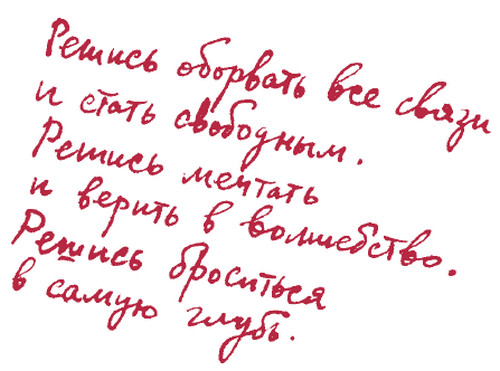 Решись оборвать все связи
и стать свободным.
Решись мечтать
и верить в волшебство.
Решись броситься
в самую глубь.